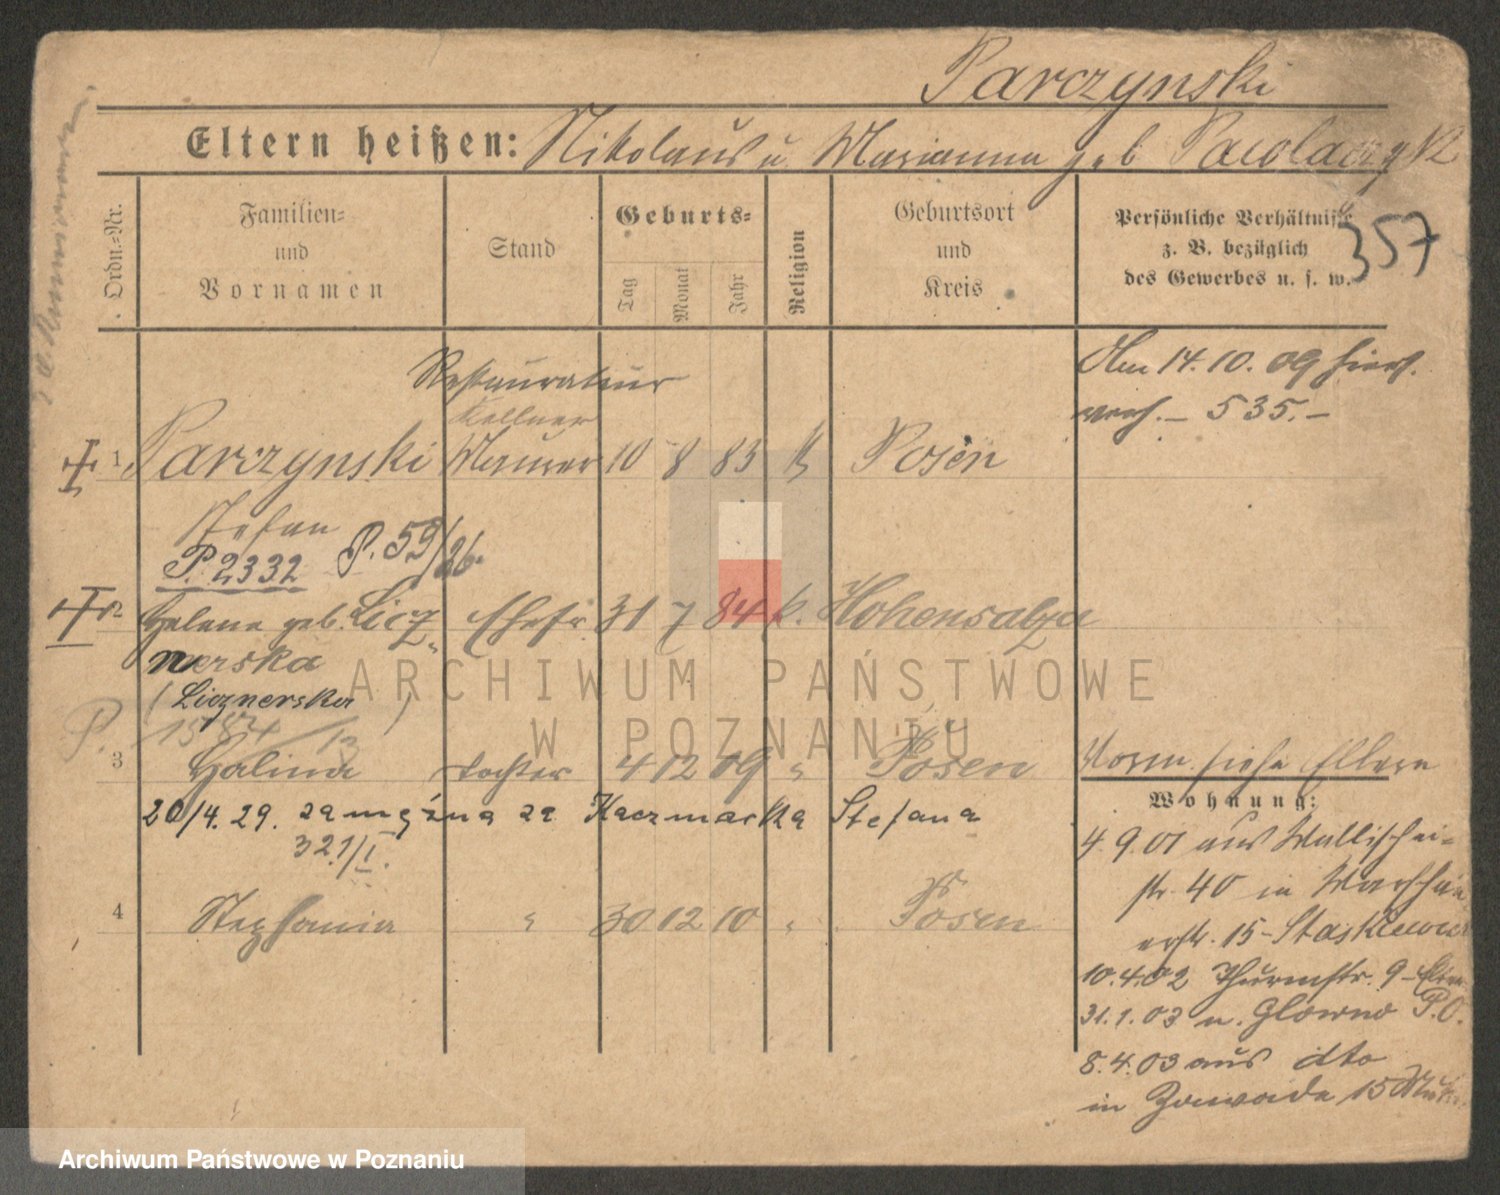 Parczynski
Eltern heißen: Nikolaus u. Marianna geb
Ordn.-Nr.
Familien-
und
Vornamen
Stand
Geburts-
Tag
Monat
Jahr
Religion
Geburtsort
und
Kreis
Persönliche Verhältnisse
z. B. bezüglich
des Gewerbes u. s. w.
357
Restaurateur
Kellner
1 Parczynski Maurer 10 8 83 K Posen
Stefan
P. 2332 P. 59/26.
Am 14. 10. 09 hier
verh. – 535. –
2 Helena geb. Licz- Ehefr 31 7 84 k. Hohensalza
nerska
(Licznerska)
P. 1584/13
3 Halina Tochter 4 12 09 " Posen
20/4. 29. zamężna za Kaczmarka Stefana
321/I.
4 Stephania " 30 12 10 " Posen
Vorm. siehe Eltern
Wohnung:
4. 9. 01 aus Wallischei-
str. 40 in Warschau
erstr. 15 –
10. 4. 02 Thurmstr. 9 –
31. 1. 03 n. Glowno P. O.
8. 4. 03 aus dto
in Zawade 15
ARCHIWUM PAŃSTWOWE
W POZNANIU
Archiwum Państwowe w Poznaniu